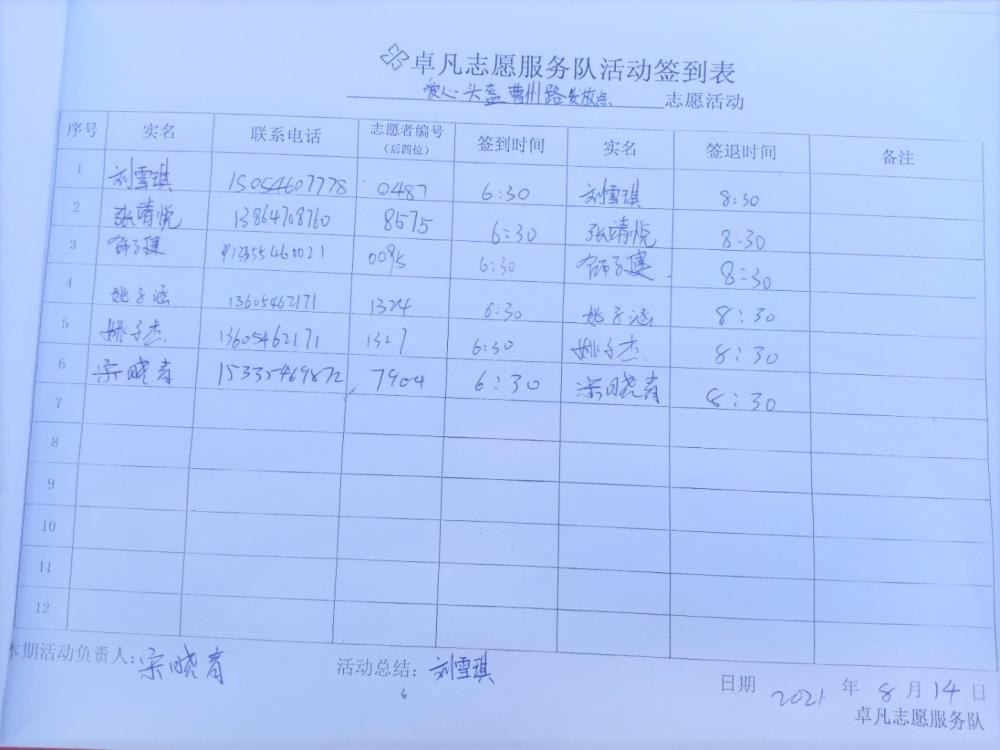 卓凡志愿服务队活动签到表
爱心头盔曹州路发放点 志愿活动
序号 实名 联系电话 志愿者编号(后四位) 签到时间 实名 签退时间 备注
1 刘雪琪 15054607778 0487 6:30 刘雪琪 8:30
2 张靖悦 13864708760 8575 6:30 张靖悦 8:30
3 12355460021 0095 6:30 8:30
4 姚子涵 13605462171 1324 6:30 姚子涵 8:30
5 姚子杰 13605462171 1327 6:30 姚子杰 8:30
6 宗晓青 15335469872 7904 6:30 宗晓青 8:30
7
8
9
10
11
12
本期活动负责人:宗晓青 活动总结:刘雪琪 日期 2021 年 8 月 14 日
卓凡志愿服务队